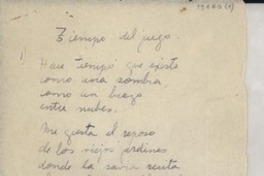 Tiempo del juego.
1)
Hace tiempo que existo
como una sombra
como un brazo
entre nubes.
Me gusta el reposo
de los viejos jardines
donde la savia